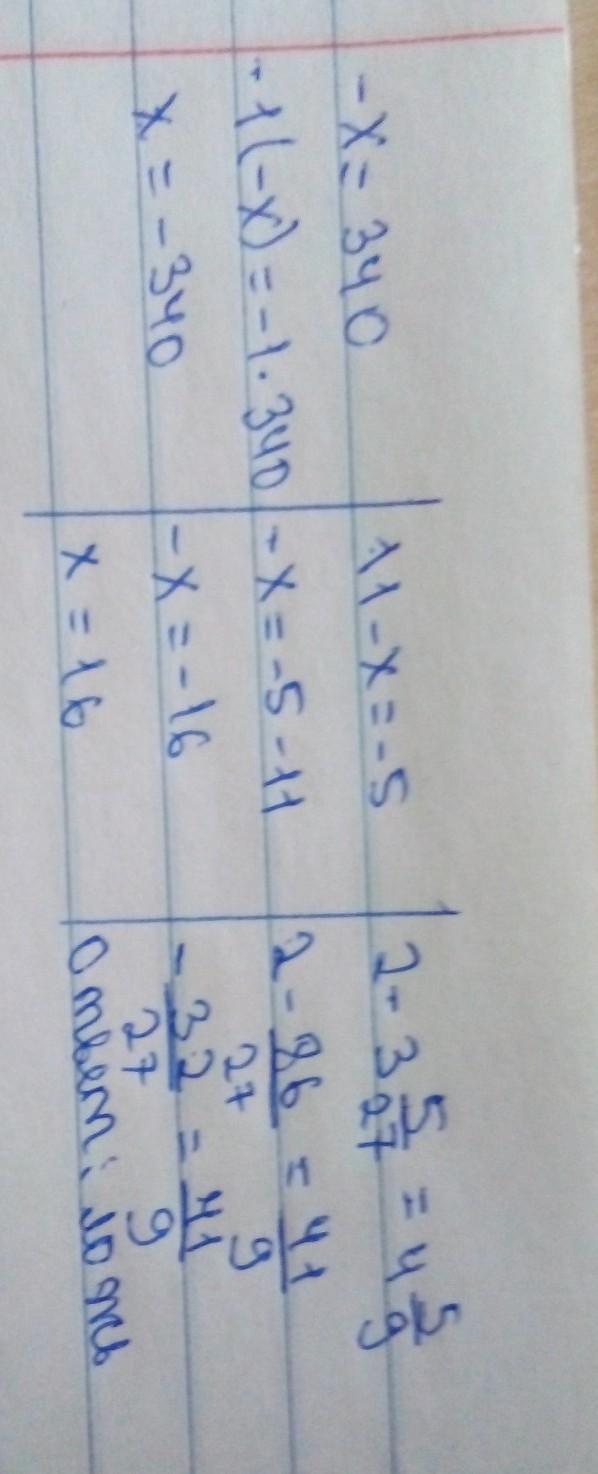 -x = 340
-1(-x) = -1·340
x = -340
11-x=-5
-x=-5-11
-x=-16
x=16
2-3 5/27 = 4 5/9
2 - 86/27 = 41/9
-32/27 = 41/9
Ответ: ложь